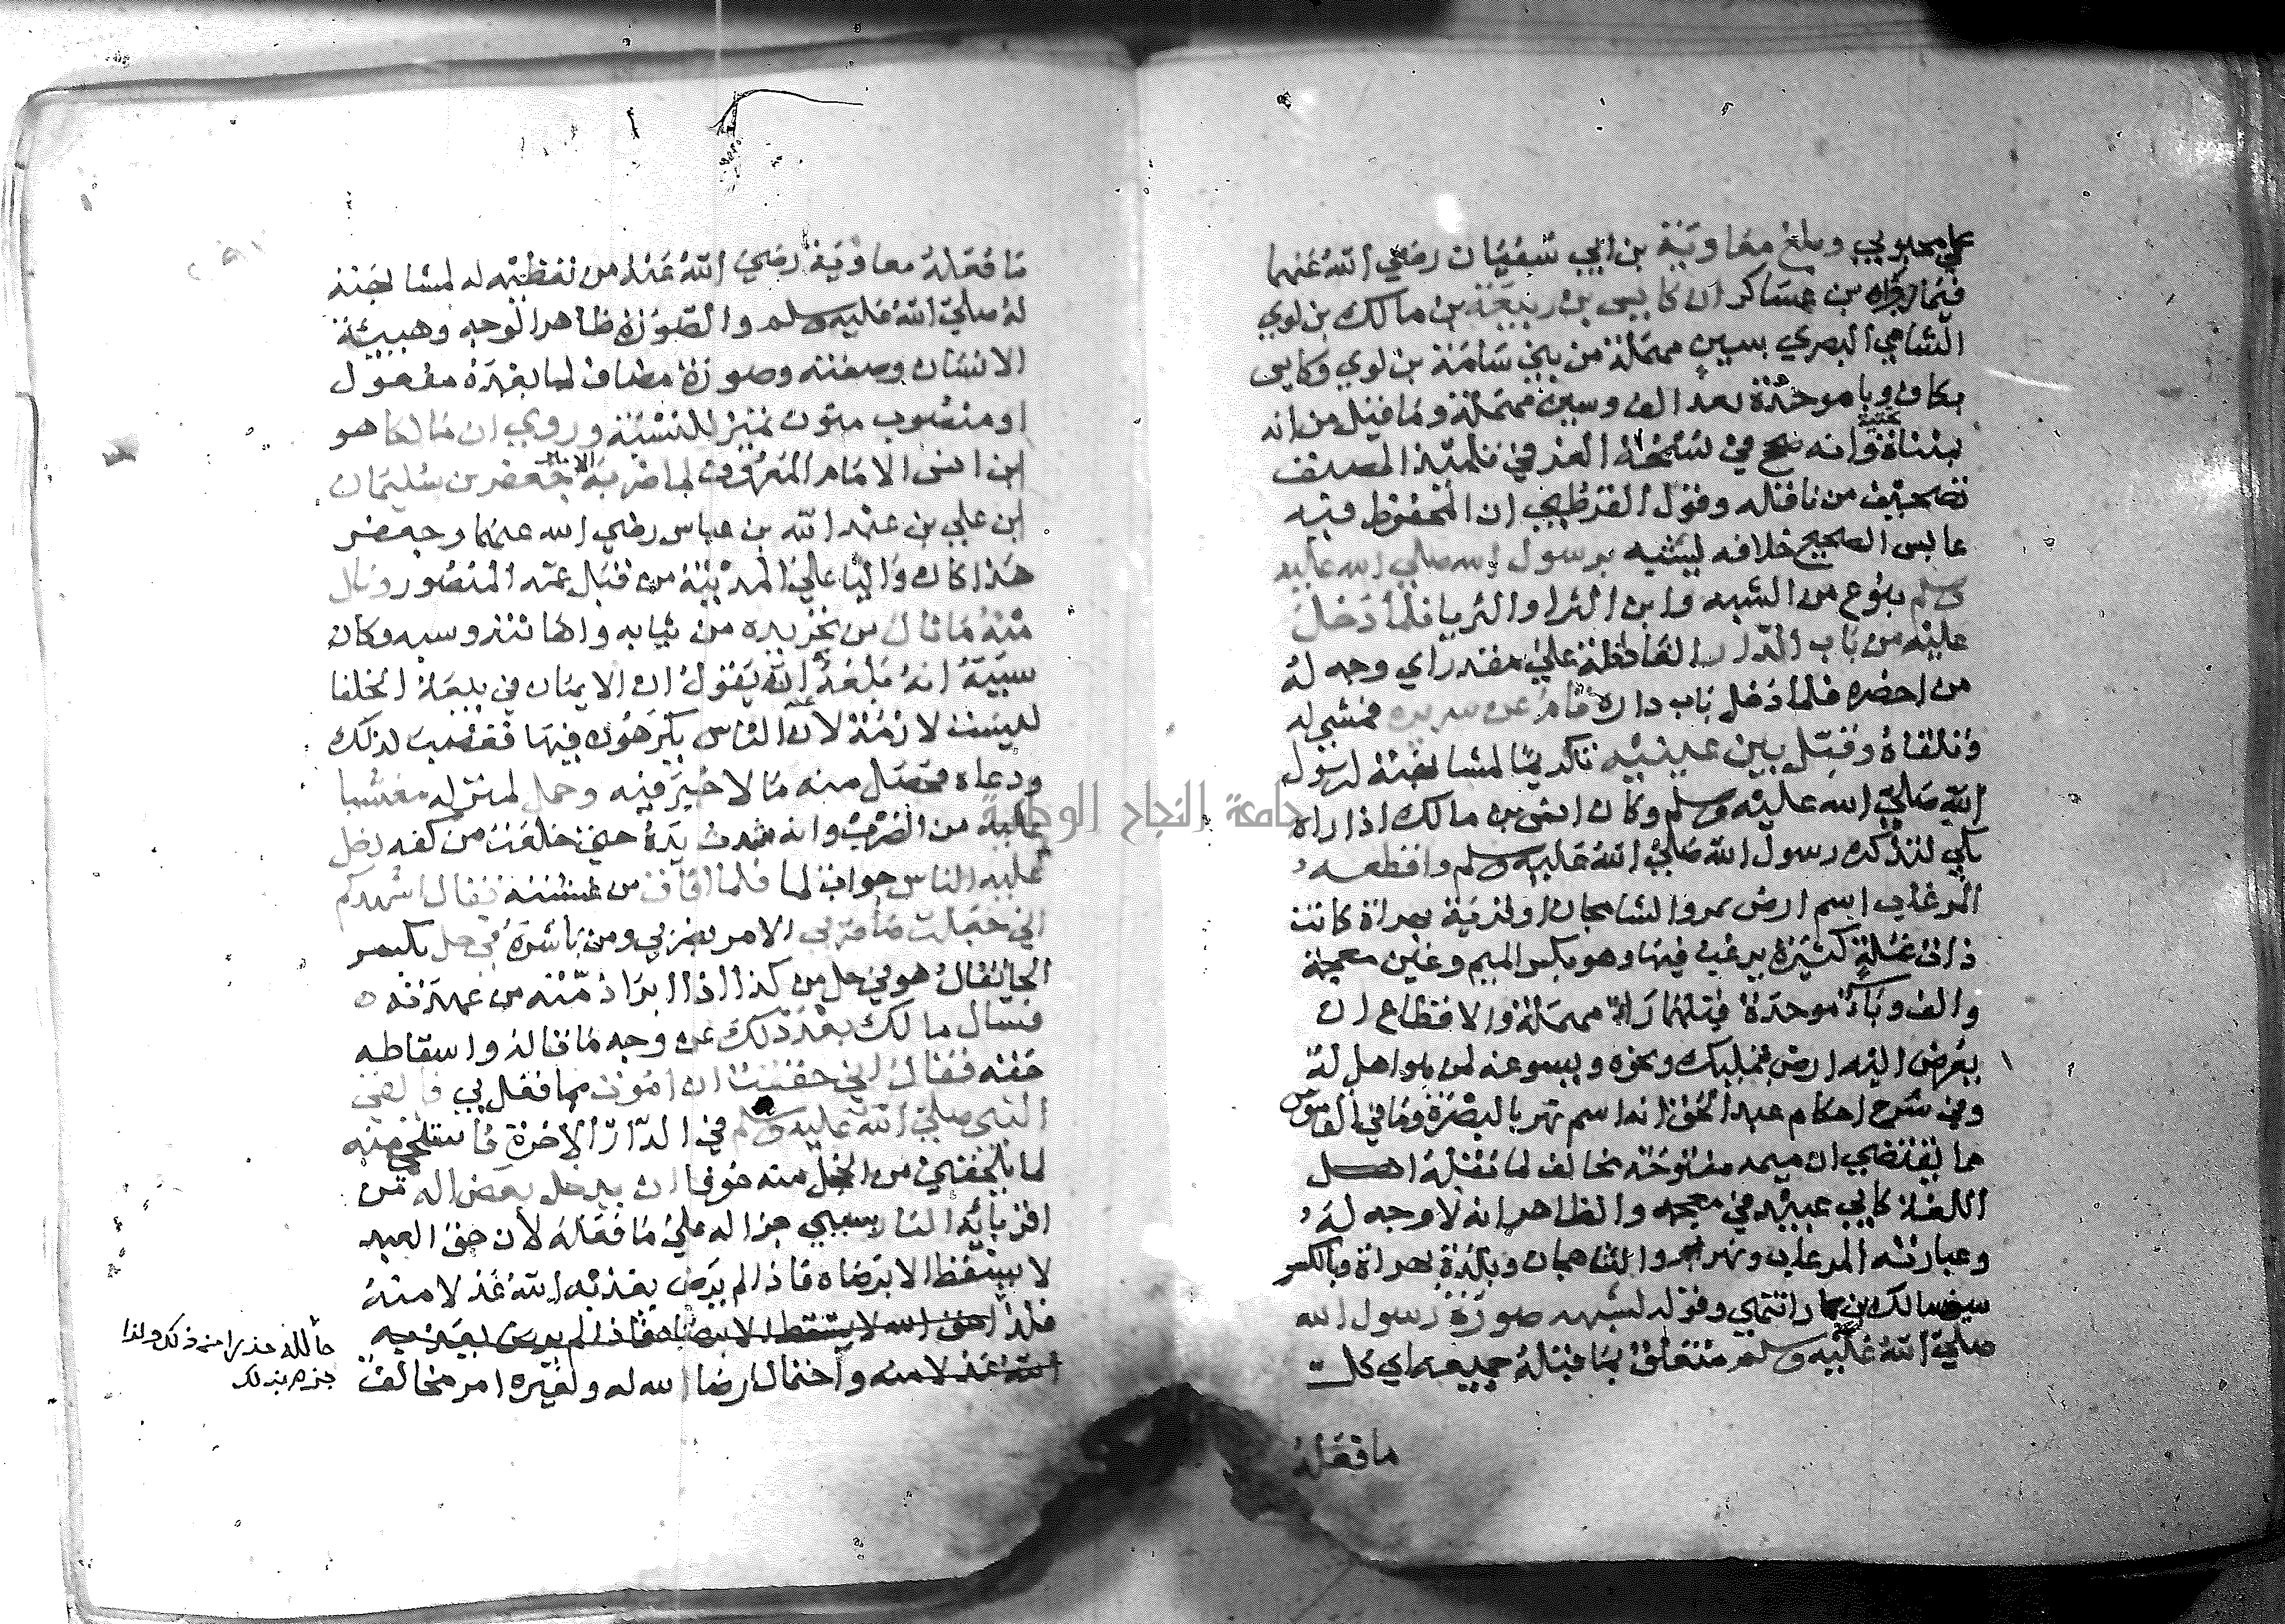 علي محبوبي وبلغ معاوية بن ابي سفيان رضي الله عنهما
فيما رواه بن عساكر ان كابس بن ربيعة بن مالك بن لوي
الشامي البصري بسين مهملة من بني سامة بن لوي وكابس
بكاف وبا موحدة بعد الف وسين مهملة وما قيل من انه
بمثناة تحتية وانه صح في نسخة العز في تلميذ المصنف
تصحيف من ناقله وقول القرطبي ان المحفوظ فيه
عابس الصحيح خلافه ليشبه برسول الله صلي الله عليه
وسلم بنوع من الشبه وابن الثرا والثريا فلما دخل
عليه من باب الدار الفا علي مقدر اي وجه له
من احضره فلما دخل باب داره قام عن سريره فمشي له
وتلقاه وقبل بين عينيه تكريما لمشابهته لرسول
الله صلي الله عليه وسلم وكان انس بن مالك اذا راه
بكي لتذكره رسول الله صلي الله عليه وسلم واقطعه
المرغاب اسم ارض بمرو الشاهجان او لقرية بهراة كانت
ذات غلة كثيرة يرغب فيها وهو بكسر الميم وغين معجمة
والف وباء موحدة قبلها راء مهملة والاقطاع ان
يفرض اليه ارض تمليك ونحوه ويسوغه لمن هو اهل له
وفي شرح احكام عبد الحق انه اسم نهر بالبصرة وما في القاموس
مما يقتضي ان ميمه مفتوحة مخالف لما نقله اهل
اللغة كابي عبيد في معجمه والظاهر انه لا وجه له
وعبارته المرغاب ونهر بمرو الشاهجان وبلدة بهراة وبالكسر
سيف مالك بن انتهي وقوله لشبهه صورة رسول الله
صلي الله عليه وسلم متعلق بما قبله جميعه اي كل
ما فعله
ما فعله معاوية رضي الله عنه من تعظيمه له لمشابهته
له صلي الله عليه وسلم والصورة ظاهر الوجه وهيئة
الانسان وصفته وصورة مضاف لما بعده مفعول
او منصوب منون تمييز للنسبة وروي ان مالكا هو
ابن انس الامام المعروف لما ضربه الامام جعفر بن سليمان
ابن علي بن عبد الله بن عباس رضي الله عنهما وجعفر
هذا كان واليا علي المدينة من قبل عمه المنصور ونال
منه ما نال من تجريده من ثيابه واهانته وسبه وكان
سببه انه بلغه انه يقول ان الايمان في بيعة الخلفا
ليست لازمة لان الناس يكرهون فيها فغضب لذلك
ودعاه فحصل منه ما لا خير فيه وحمل لمنزله مغشيا
عليه من الضرب وانه مدت يده حتي خلعت من كفه دخل
عليه الناس جواب لما فلما افاق من غشيته فقال اشهدكم
اني جعلت ضاربي الامر بضربي ومن باشره في حل بكسر
الحا يقال هو في حل من كذا اذا ابرا ذمته من عهدته
فسال مالك بعد ذلك عن وجه ما قاله واسقاطه
حقه فقال اني خفت ان اموت مما فعل بي فالقي
النبي صلي الله عليه وسلم في الدار الاخرة فاستحي منه
لما يلحقني من الخجل منه خوفا ان يدخل بعض اله من
اقربائه النار بسببي جزا له علي ما فعله لان حق العبد
لا يسقط الا برضاه فاذا لم يرض يعذبه الله عدلا منه
فلذا حق الله لا يسقط الا برضاه فاذا لم يرض يعذبه
الله عدلا منه واحتمال رضا الله له ولغيره امر مخالف
حالله حذرا من ذلك ولذا
جزم بذلك
جامعة النجاح الوطنية